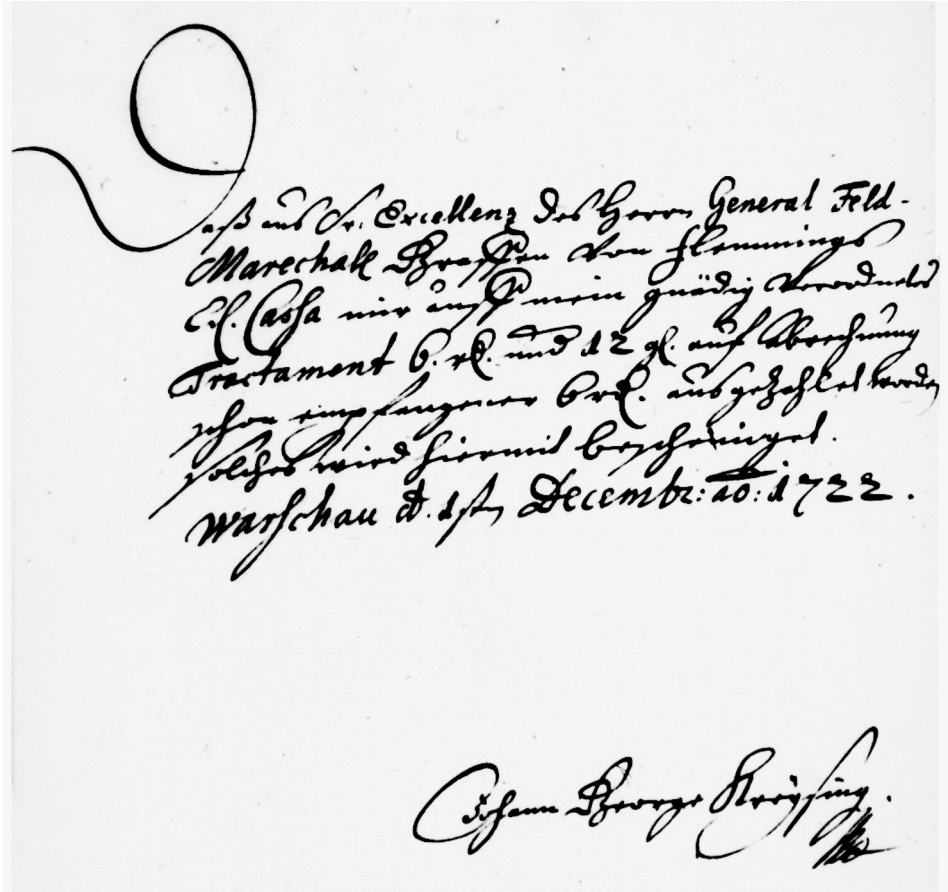 Daß aus Sr. Excellenz des Herrn General Feld-
Marechall Graffen von Flemmings
Cassa mir auff mein gnädig verordnetes
Tractament 6. rl. und 12 gl. auf Abrechnung
schon empfangener 6 rl. ausgezahlet worden
solches wird hiermit bescheiniget.
Warschau d. 1stn Decembr: ao: 1722.
Johann George Kreÿsing.